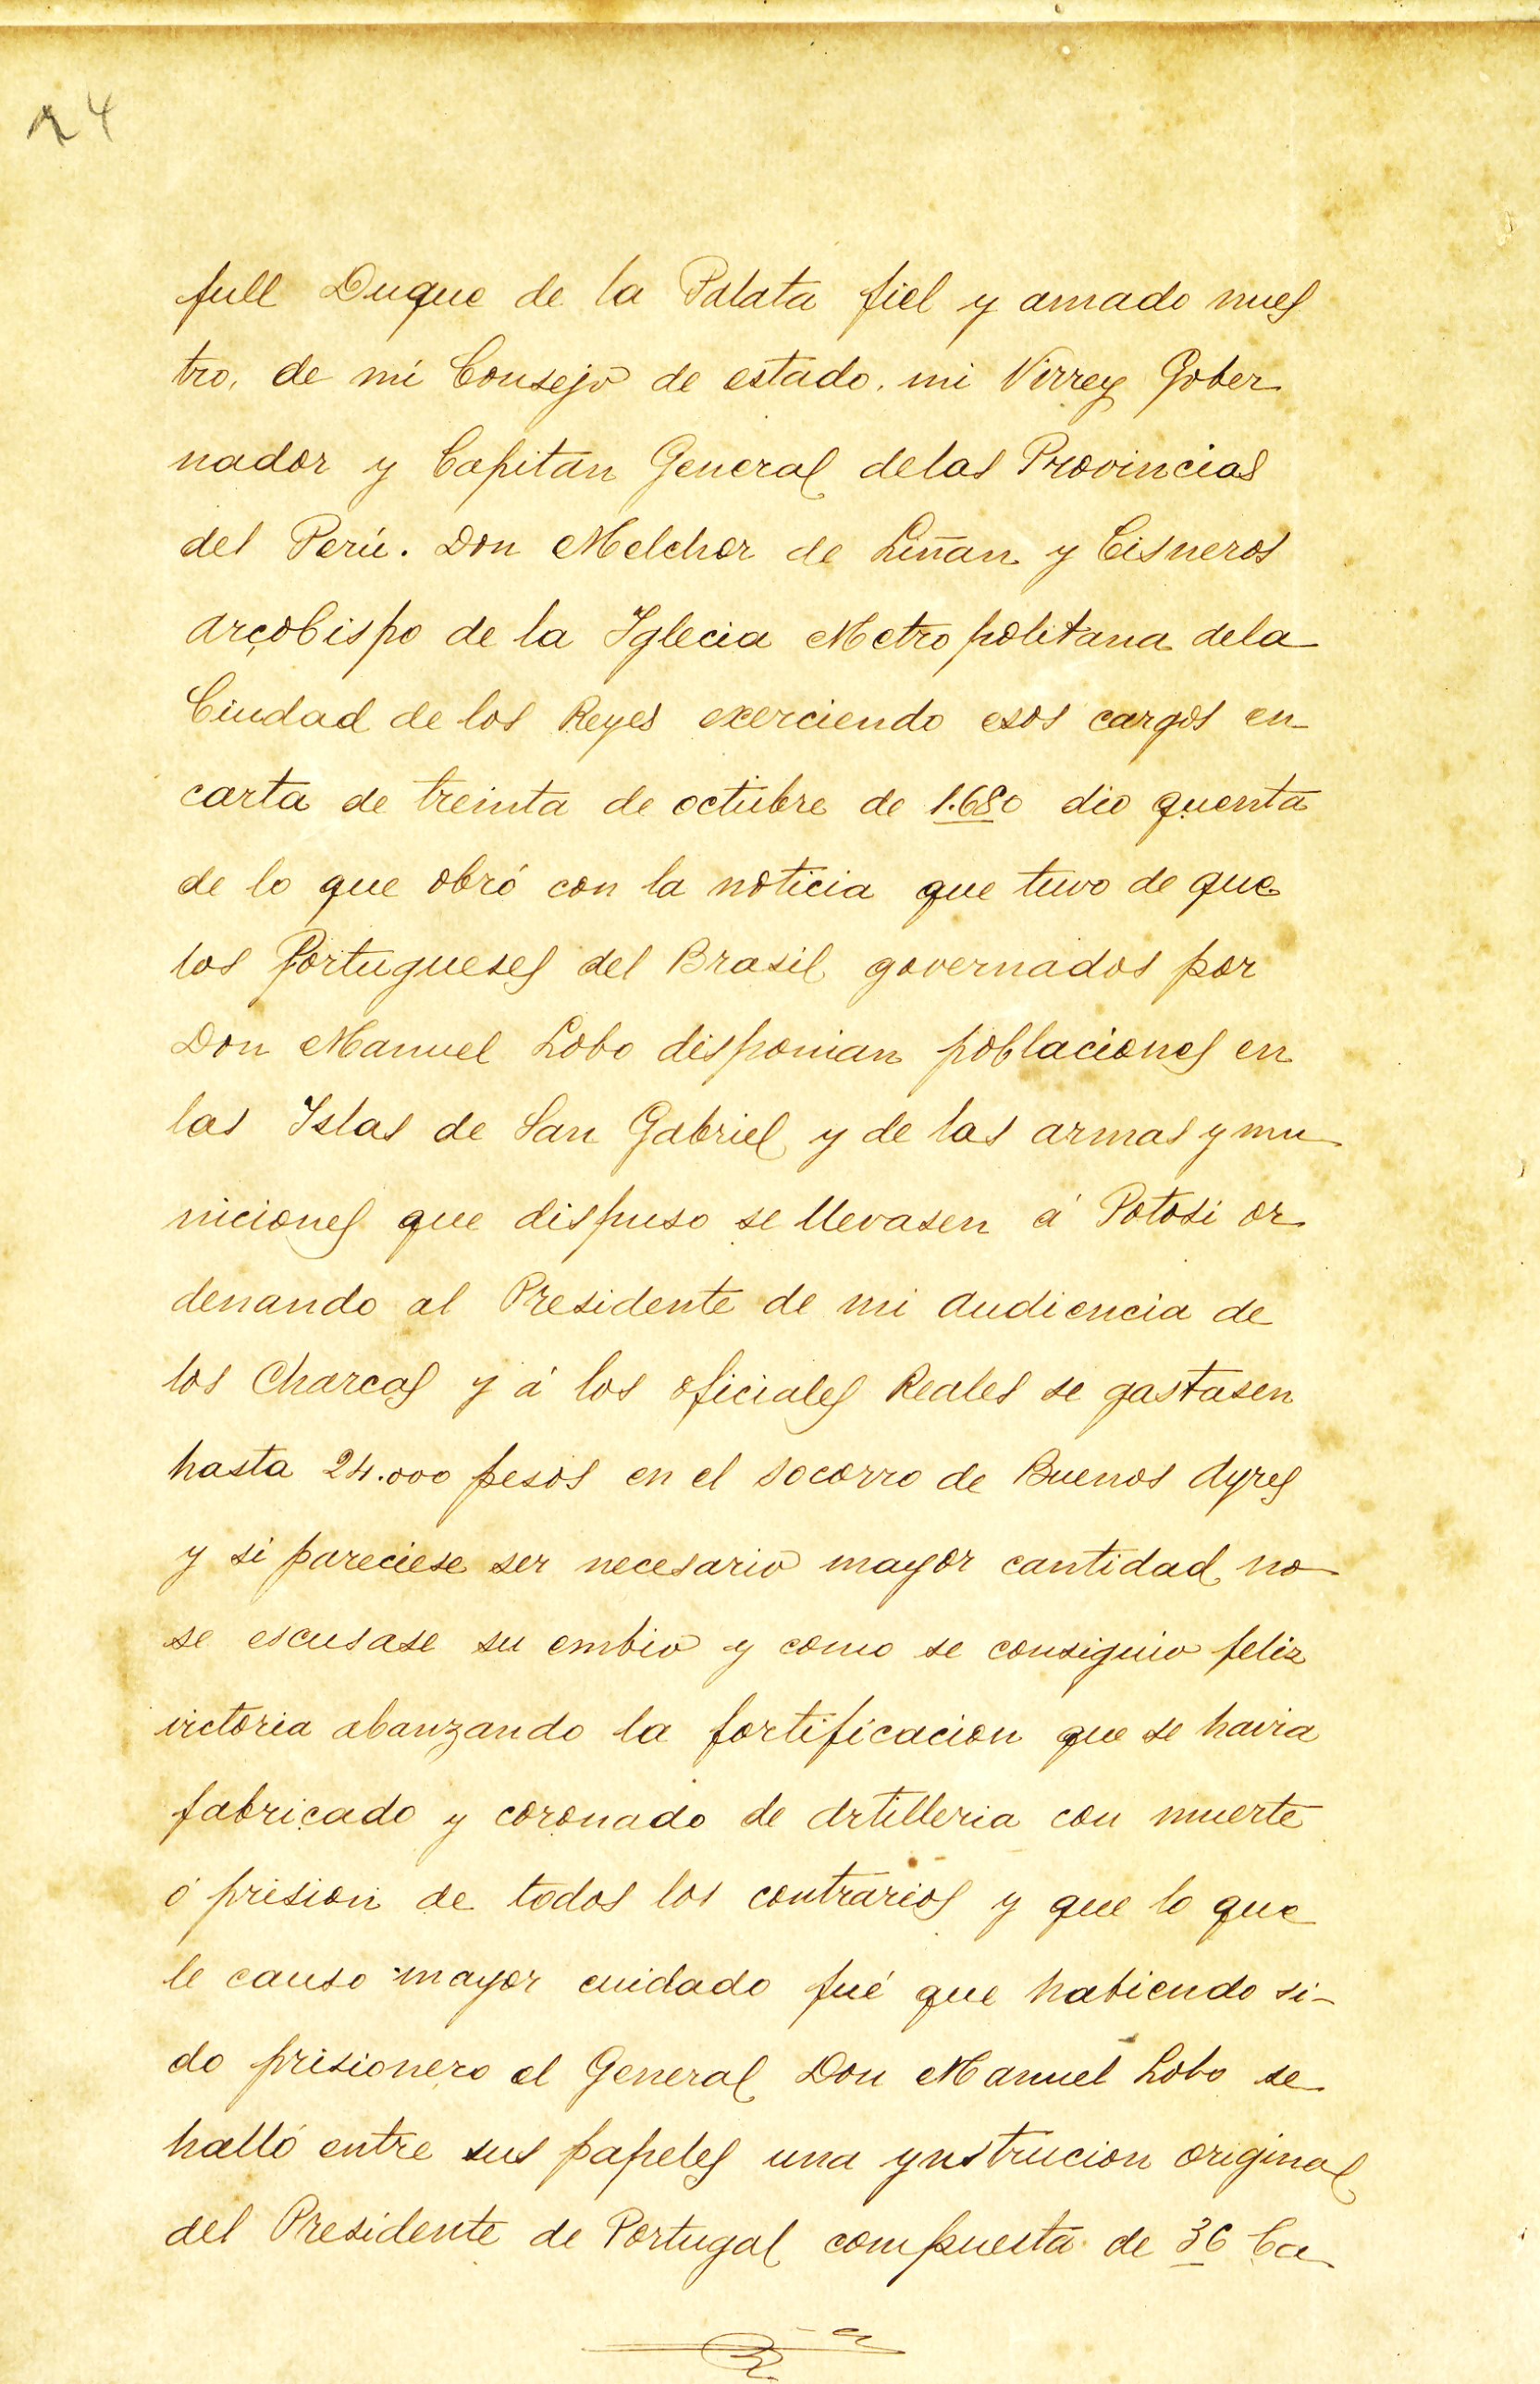 24
full Duque de la Palata fiel y amado nues
tro, de mi Consejo de estado. mi Virrey Gober
nador y Capitan General delas Provincias
del Perú. Don Melchor de Liñan y Cisneros
arçobispo de la Iglecia Metropolitana dela
Ciudad de los Reyes exerciendo esos cargos en
carta de treinta de octubre de 1.680 dio quenta
de lo que obró con la noticia que tuvo de que
los Portugueses del Brasil governados por
Don Manuel Lobo disponian poblaciones en
las Islas de San Gabriel y de las armas y mu
niciones que dispuso se llevasen á Potosi or
denando al Presidente de mi audiencia de
los Charcas y á los oficiales Reales se gastasen
hasta 24.000 pesos en el socorro de Buenos Ayres
y si pareciese ser necesario mayor cantidad no
se escusase su embio y como se consiguio feliz
victoria abanzando la fortificacion que se havia
fabricado y coronado de artilleria con muerte
ó prision de todos los contrarios y que lo que
le causo mayor cuidado fué que habiendo si-
do prisionero el General Don Manuel Lobo se
halló entre sus papeles una ynstrucion original
del Presidente de Portugal compuesta de 36 Ca